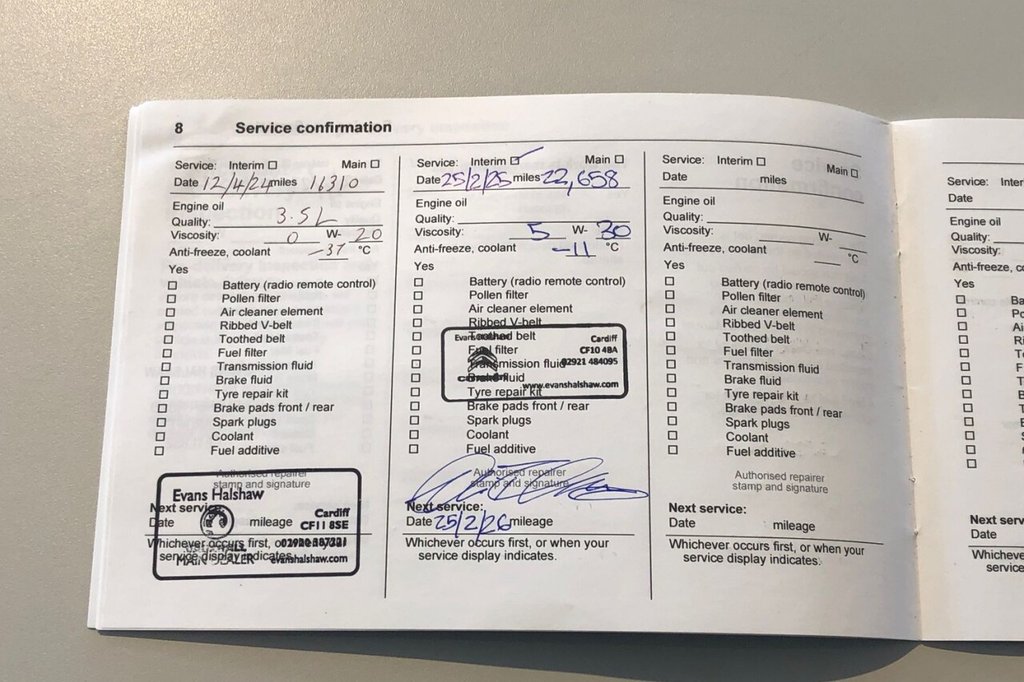 8 Service confirmation
Service: Interim ☐ Main ☐
Date 12/4/24 miles 16310
Engine oil
Quality: 3.5L
Viscosity: 0 W- 20
Anti-freeze, coolant -37 °C
Yes
☐ Battery (radio remote control)
☐ Pollen filter
☐ Air cleaner element
☐ Ribbed V-belt
☐ Toothed belt
☐ Fuel filter
☐ Transmission fluid
☐ Brake fluid
☐ Tyre repair kit
☐ Brake pads front / rear
☐ Spark plugs
☐ Coolant
☐ Fuel additive
Authorised repairer
stamp and signature
Evans Halshaw
Cardiff
CF11 8SE
MAIN DEALER
evanshalshaw.com
Next service:
Date mileage
Whichever occurs first, or when your
service display indicates.
Service: Interim ☑ Main ☐
Date 25/2/25 miles 22,658
Engine oil
Quality:
Viscosity: 5 W- 30
Anti-freeze, coolant -11 °C
Yes
☐ Battery (radio remote control)
☐ Pollen filter
☐ Air cleaner element
☐ Ribbed V-belt
☐ Toothed belt
☐ Fuel filter
☐ Transmission fluid
☐ Brake fluid
☐ Tyre repair kit
☐ Brake pads front / rear
☐ Spark plugs
☐ Coolant
☐ Fuel additive
Cardiff
CF10 4BA
02921 484095
www.evanshalshaw.com
Authorised repairer
stamp and signature
Next service:
Date 25/2/26 mileage
Whichever occurs first, or when your
service display indicates.
Service: Interim ☐ Main ☐
Date miles
Engine oil
Quality:
Viscosity: W-
Anti-freeze, coolant °C
Yes
☐ Battery (radio remote control)
☐ Pollen filter
☐ Air cleaner element
☐ Ribbed V-belt
☐ Toothed belt
☐ Fuel filter
☐ Transmission fluid
☐ Brake fluid
☐ Tyre repair kit
☐ Brake pads front / rear
☐ Spark plugs
☐ Coolant
☐ Fuel additive
Authorised repairer
stamp and signature
Next service:
Date mileage
Whichever occurs first, or when your
service display indicates.
Service: Inter
Date
Engine oil
Quality:
Viscosity:
Anti-freeze, co
Yes
☐ Ba
☐ Po
☐ Air
☐ Ri
☐ To
☐ Fu
☐ Tr
☐ Br
☐ Ty
☐ Br
☐ S
☐ C
☐
Next serv
Date
Whicheve
service